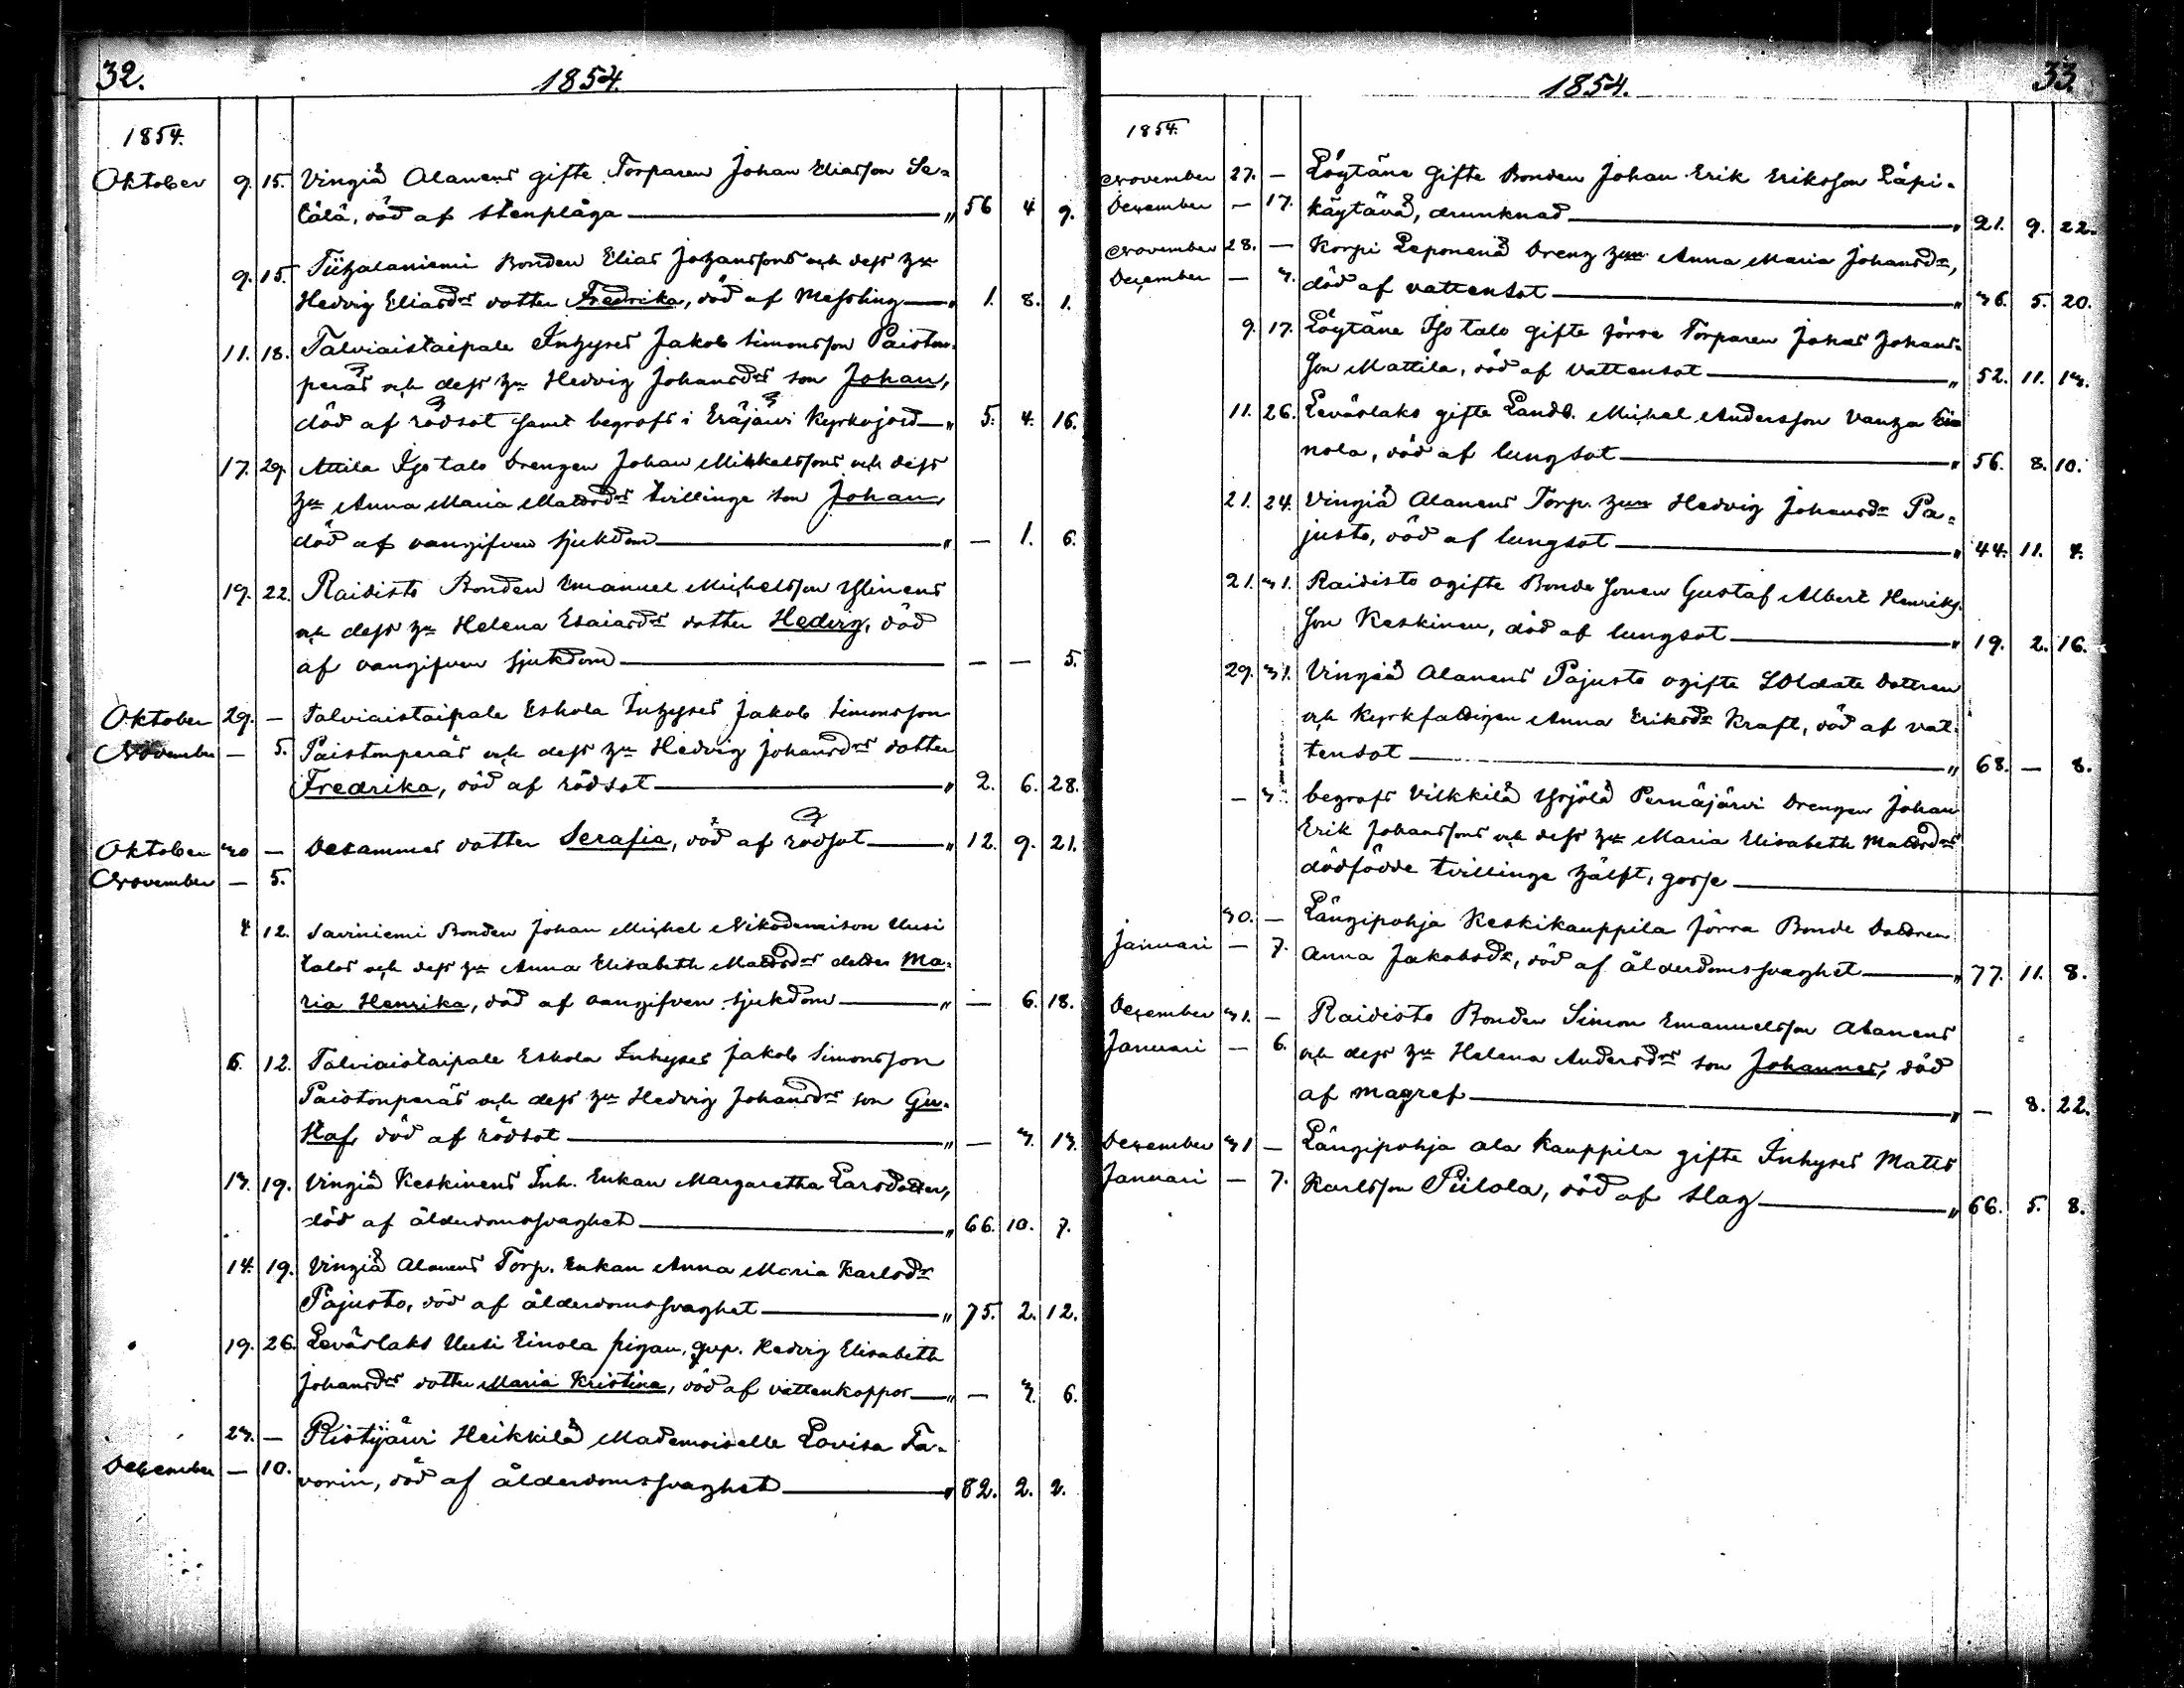 32.
1854.
1854.
Oktober 9. 15. Vingiä Alanens gifte Torparen Johan Eliasson Se-
tälä, död af stenplåga — " 56 4 9.
9. 15. Tiihalaniemi Bonden Elias Johanssons och dess hu
Hedvig Eliasdrs dotter Fredrika, död af Messling — " 1. 8. 1.
11. 18. Talviaistaipale Inhyses Jakob Simonsson Paiston-
peräs och dess hu Hedvig Johansdrs son Johan,
död af rödsot samt begrafs i Eräjärvi Kyrkojord — " 5. 4. 16.
17. 29. Attila Iso talo Drengen Johan Mikkelssons och dess
hu Anna Maria Matsdrs tvillinge son Johan,
död af oangifven sjukdom — " — 1. 6.
19. 22. Raidisto Bonden Emanuel Michelsson Ylinens
och dess hu Helena Esaiasdrs dotter Hedvig, död
af oangifven sjukdom — — — 5.
Oktober 29. — Talviaistaipale Eskola Inhyses Jakob Simonsson
November — 5. Paistonperäs och dess hu Hedvig Johansdrs dotter
Fredrika, död af rödsot — " 2. 6. 28.
Oktober 30 — Desammes dotter Serafia, död af rödsot — " 12. 9. 21.
November — 5.
4 12. Saviniemi Bonden Johan Michel Nikodemison Uusi
talos och dess hu Anna Elisabeth Matsdrs dotter Ma-
ria Henrika, död af oangifven sjukdom — " — 6. 18.
6. 12. Talviaistaipale Eskola Inhyses Jakob Simonsson
Paistonperäs och dess hu Hedvig Johansdrs son Gu-
staf, död af rödsot — " — 3. 13.
13. 19. Vingiä Keskinens Inh. Enkan Margaretha Larsdotter,
död af ålderdomssvaghet — " 66. 10. 7.
14. 19. Vingiä Alanens Torp. Enkan Anna Maria Karlsdr
Pajusto, död af ålderdomssvaghet — " 75. 2. 12.
19. 26. Leväslaks Uusi Einola pigan, qvp. Hedvig Elisabeth
Johansdrs dotter Maria Kristina, död af vattenkoppor — " — 3. 6.
23. — Ristijärvi Heikkilä Mademoiselle Lovisa Ta-
December — 10. vonin, död af ålderdomssvaghet — " 82. 2. 2.
1854.
33.
1854.
November 27. — Löytäne Gifte Bonden Johan Erik Eriksson Läpi-
December — 17. käytävä, drunknad — " 21. 9. 22.
November 28. — Korpi Leponens Dreng hun Anna Maria Johansdr,
December — 3. död af vattensot — " 36. 5. 20.
9. 17. Löytäne Iso talo gifte förre Torparen Johas Johans-
son Mattila, död af vattensot — " 52. 11. 13.
11. 26. Leväslaks gifte Landb. Michel Andersson Vanha Ei-
nola, död af lungsot — " 56. 8. 10.
21. 24. Vingiä Alanens Torp. hun Hedvig Johansdr Pa-
justo, död af lungsot — " 44. 11. 4.
21. 31. Raidisto ogifte Bonde sonen Gustaf Albert Henriks-
son Keskinen, död af lungsot — " 19. 2. 16.
29. 31. Vingiä Alanens Pajusto ogifte Soldate dottren
och Kyrkfattigen Anna Eriksdr Kraft, död af vat-
tensot — " 68. — 8.
— 3. begrofs Vilkkilä Yrjölä Pernäjärvi Drengen Johan
Erik Johanssons och dess hu Maria Elisabeth Matsdrs
dödfödde tvillinge hälft, gosse —
30. — Längipohja Keskikauppila förra Bonde Dottren
Januari — 7. Anna Jakobsdr, död af ålderdomssvaghet — " 77. 11. 8.
December 31. — Raidisto Bonden Simon Emanuelsson Alanens
Januari — 6. och dess hu Helena Andersdrs son Johannes, död
af magref — " — 8. 22.
December 31 — Längipohja Ala Kauppila gifte Inhyses Matts
Januari — 7. Karlsson Piilola, död af slag — " 66. 5. 8.